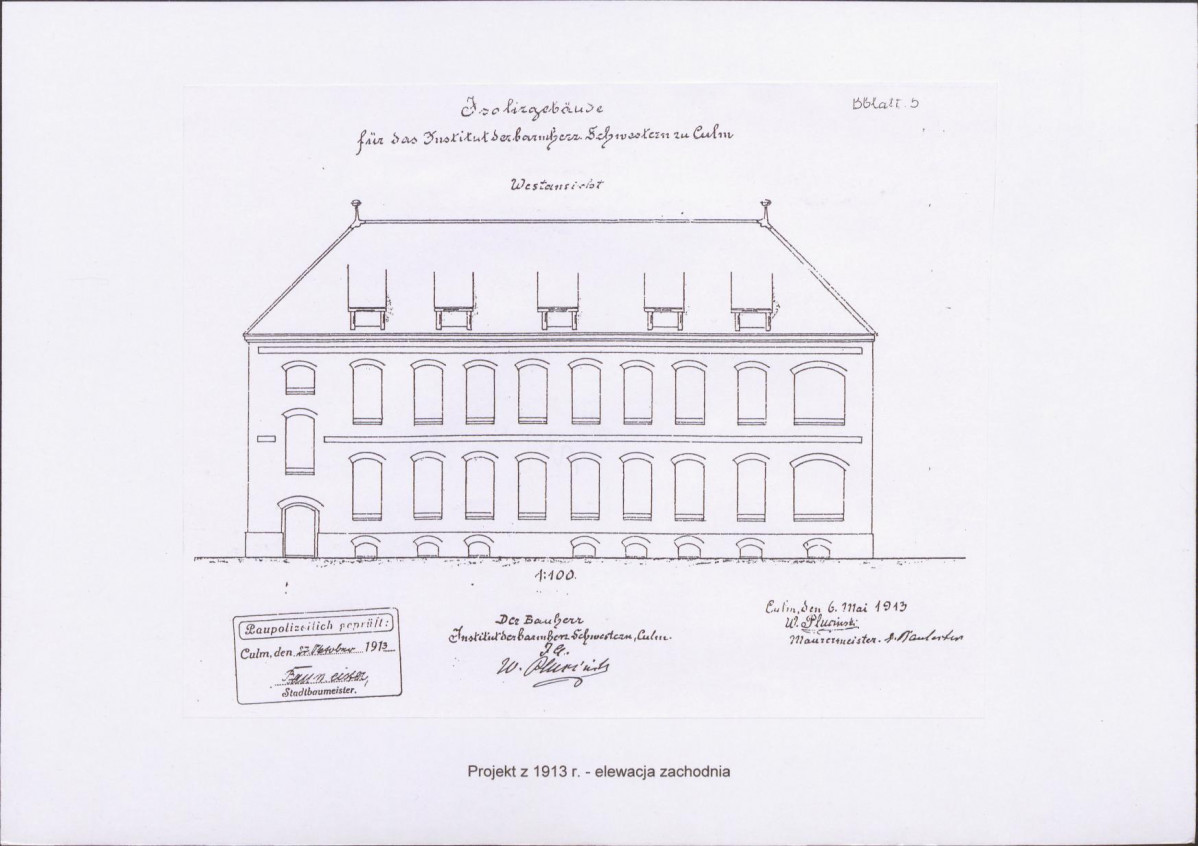 Isolirgebäude
Bblatt. 5
für das Institut der barmherz. Schwestern zu Culm
Westansicht
1:100.
Culm, den 6. Mai 1913
W. Plucinski
Maurermeister.
Der Bauherr
Institut der barmherz. Schwestern, Culm.
W. Plucinski
Baupolizeilich geprüft:
Culm, den 27. Oktober 1913
Stadtbaumeister.
Projekt z 1913 r. - elewacja zachodnia